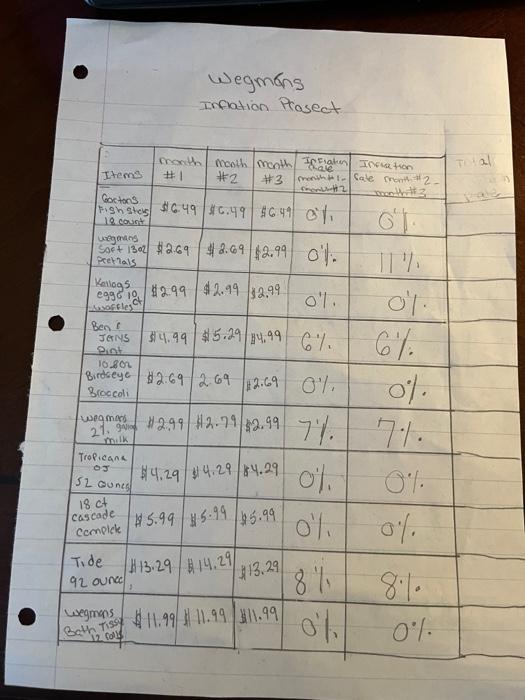 Wegmans
Inflation Prosect
Items month #1 month #2 month #3 Inflation Rate month #1- month #2 Inflation Rate month #2- month #3 Total
Gortons Fish sticks 18 count $6.49 $6.49 $6.49 0% 0%
wegmans Soft 13oz Pretzals $2.69 $2.69 $2.99 0% 11%
Kellogs eggo 10 ct waffles $2.99 $2.99 $2.99 0% 0%
Ben & Jerrys Pint $4.99 $5.29 $4.99 6% 6%
10.8oz Birdseye Broccoli $2.69 2.69 $2.69 0% 0%
Wegmans 2% gallon milk $2.99 $2.79 $2.99 7% 7%
Tropicana OJ 52 ounces $4.29 $4.29 $4.29 0% 0%
18 ct cascade complete $5.99 $5.99 $5.99 0% 0%
Tide 92 ounce $13.29 $14.29 $13.29 8% 8%
Wegmans Bath Tissue 12 rolls $11.99 $11.99 $11.99 0% 0%